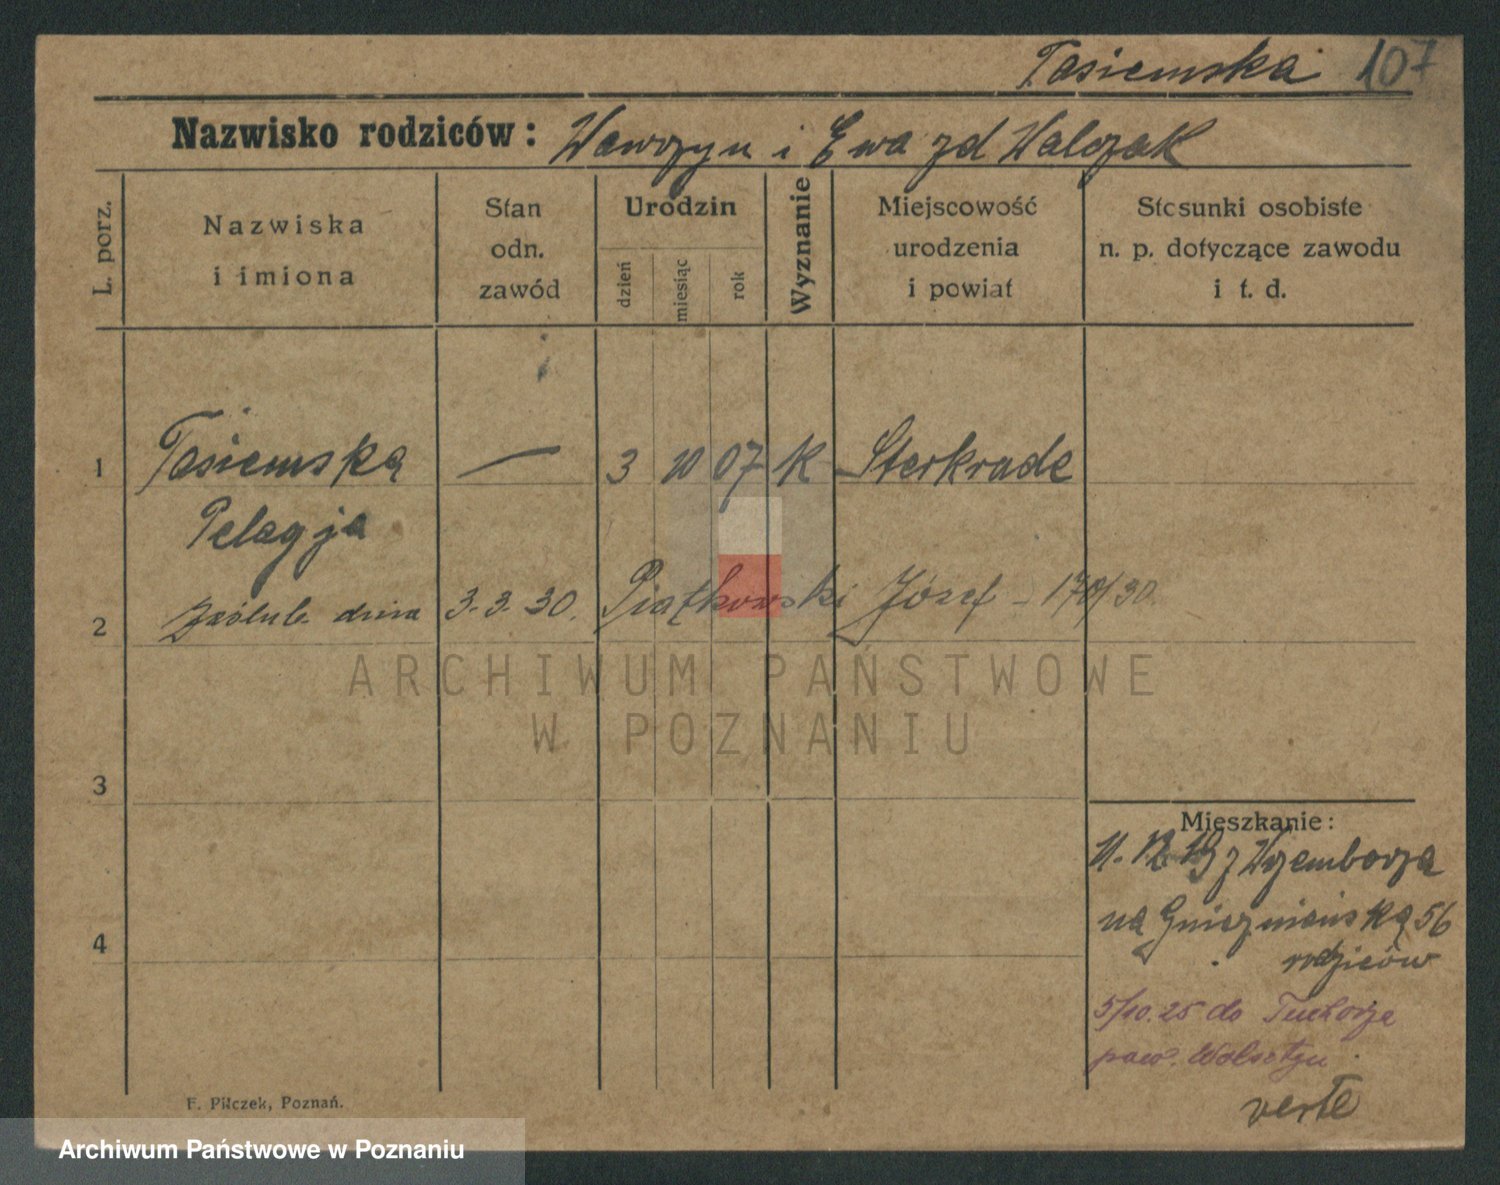 Tasiemska 107
Nazwisko rodziców: Wawrzyn i Ewa zd Walczak
L. porz.
Nazwiska
i imiona
Stan
odn.
zawód
Urodzin
dzień
miesiąc
rok
Wyznanie
Miejscowość
urodzenia
i powiat
Stosunki osobiste
n. p. dotyczące zawodu
i t. d.
1 Tasiemską — 3 10 07 K Sterkrade
Pelagja
2 Zaślub. dnia 3.3.30. Piątkowski Józef - /30.
ARCHIWUM PAŃSTWOWE
W POZNANIU
3
Mieszkanie:
11. 12 19 z
4
na Gnieznieńską 56
rodziców
5/10.25 do Tuchorza
pow. Wolsztyn
verte
F. Pilczek, Poznań.
Archiwum Państwowe w Poznaniu